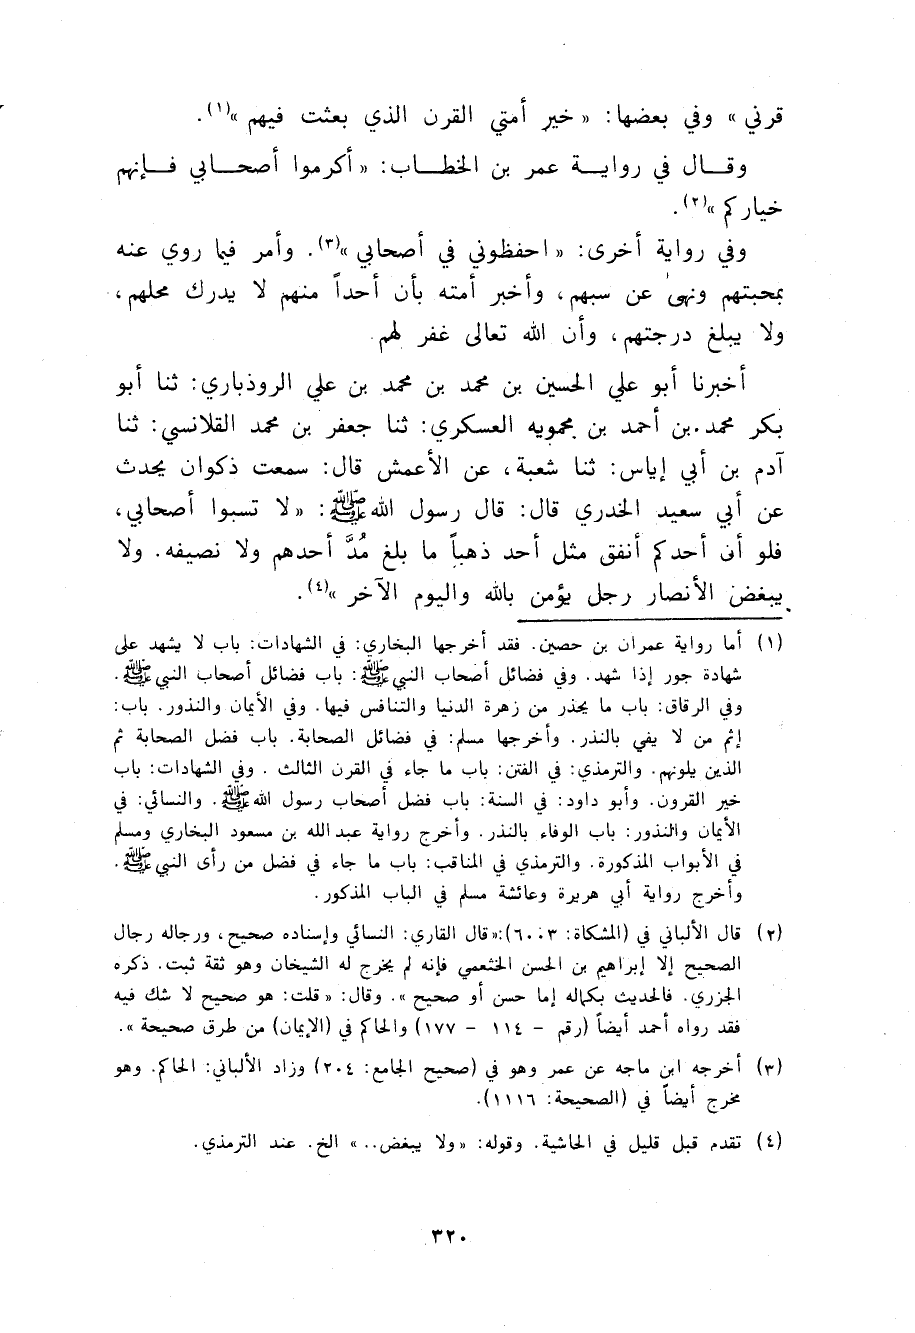 قرني » وفي بعضها: « خير أمتي القرن الذي بعثت فيهم »(١).
وقـــال في روايـــة عمر بن الخطـــاب: « أكرموا أصحـــابي فـــإنهم
خياركم »(٢).
وفي رواية أخرى: « احفظوني في أصحابي »(٣). وأمر فيما روي عنه
بمحبتهم ونهى عن سبهم، وأخبر أمته بأن أحداً منهم لا يدرك محلهم،
ولا يبلغ درجتهم، وأن الله تعالى غفر لهم.
أخبرنا أبو علي الحسين بن محمد بن محمد بن علي الروذباري: ثنا أبو
بكر محمد بن أحمد بن محمويه العسكري: ثنا جعفر بن محمد القلانسي: ثنا
آدم بن أبي إياس: ثنا شعبة، عن الأعمش قال: سمعت ذكوان يحدث
عن أبي سعيد الخدري قال: قال رسول الله ﷺ: « لا تسبوا أصحابي،
فلو أن أحدكم أنفق مثل أحد ذهباً ما بلغ مُدَّ أحدهم ولا نصيفه. ولا
يبغض الأنصار رجل يؤمن بالله واليوم الآخر »(٤).
(١) أما رواية عمران بن حصين. فقد أخرجها البخاري: في الشهادات: باب لا يشهد على
شهادة جور إذا شهد. وفي فضائل أصحاب النبي ﷺ: باب فضائل أصحاب النبي ﷺ.
وفي الرقاق: باب ما يحذر من زهرة الدنيا والتنافس فيها. وفي الأيمان والنذور. باب:
إثم من لا يفي بالنذر. وأخرجها مسلم: في فضائل الصحابة. باب فضل الصحابة ثم
الذين يلونهم. والترمذي: في الفتن: باب ما جاء في القرن الثالث . وفي الشهادات: باب
خير القرون. وأبو داود: في السنة: باب فضل أصحاب رسول الله ﷺ. والنسائي: في
الأيمان والنذور: باب الوفاء بالنذر. وأخرج رواية عبد الله بن مسعود البخاري ومسلم
في الأبواب المذكورة. والترمذي في المناقب: باب ما جاء في فضل من رأى النبي ﷺ.
وأخرج رواية أبي هريرة وعائشة مسلم في الباب المذكور.
(٢) قال الألباني في (المشكاة: ٦٠٠٣):«قال القاري: النسائي وإسناده صحيح، ورجاله رجال
الصحيح إلا إبراهيم بن الحسن الخثعمي فإنه لم يخرج له الشيخان وهو ثقة ثبت. ذكره
الجزري. فالحديث بكماله إما حسن أو صحيح ». وقال: « قلت: هو صحيح لا شك فيه
فقد رواه أحمد أيضاً (رقم - ١١٤ - ١٧٧) والحاكم في (الإيمان) من طرق صحيحة ».
(٣) أخرجه ابن ماجه عن عمر وهو في (صحيح الجامع: ٢٠٤) وزاد الألباني: الحاكم. وهو
مخرج أيضاً في (الصحيحة: ١١١٦).
(٤) تقدم قبل قليل في الحاشية. وقوله: «ولا يبغض..» الخ. عند الترمذي.
٣٢٠